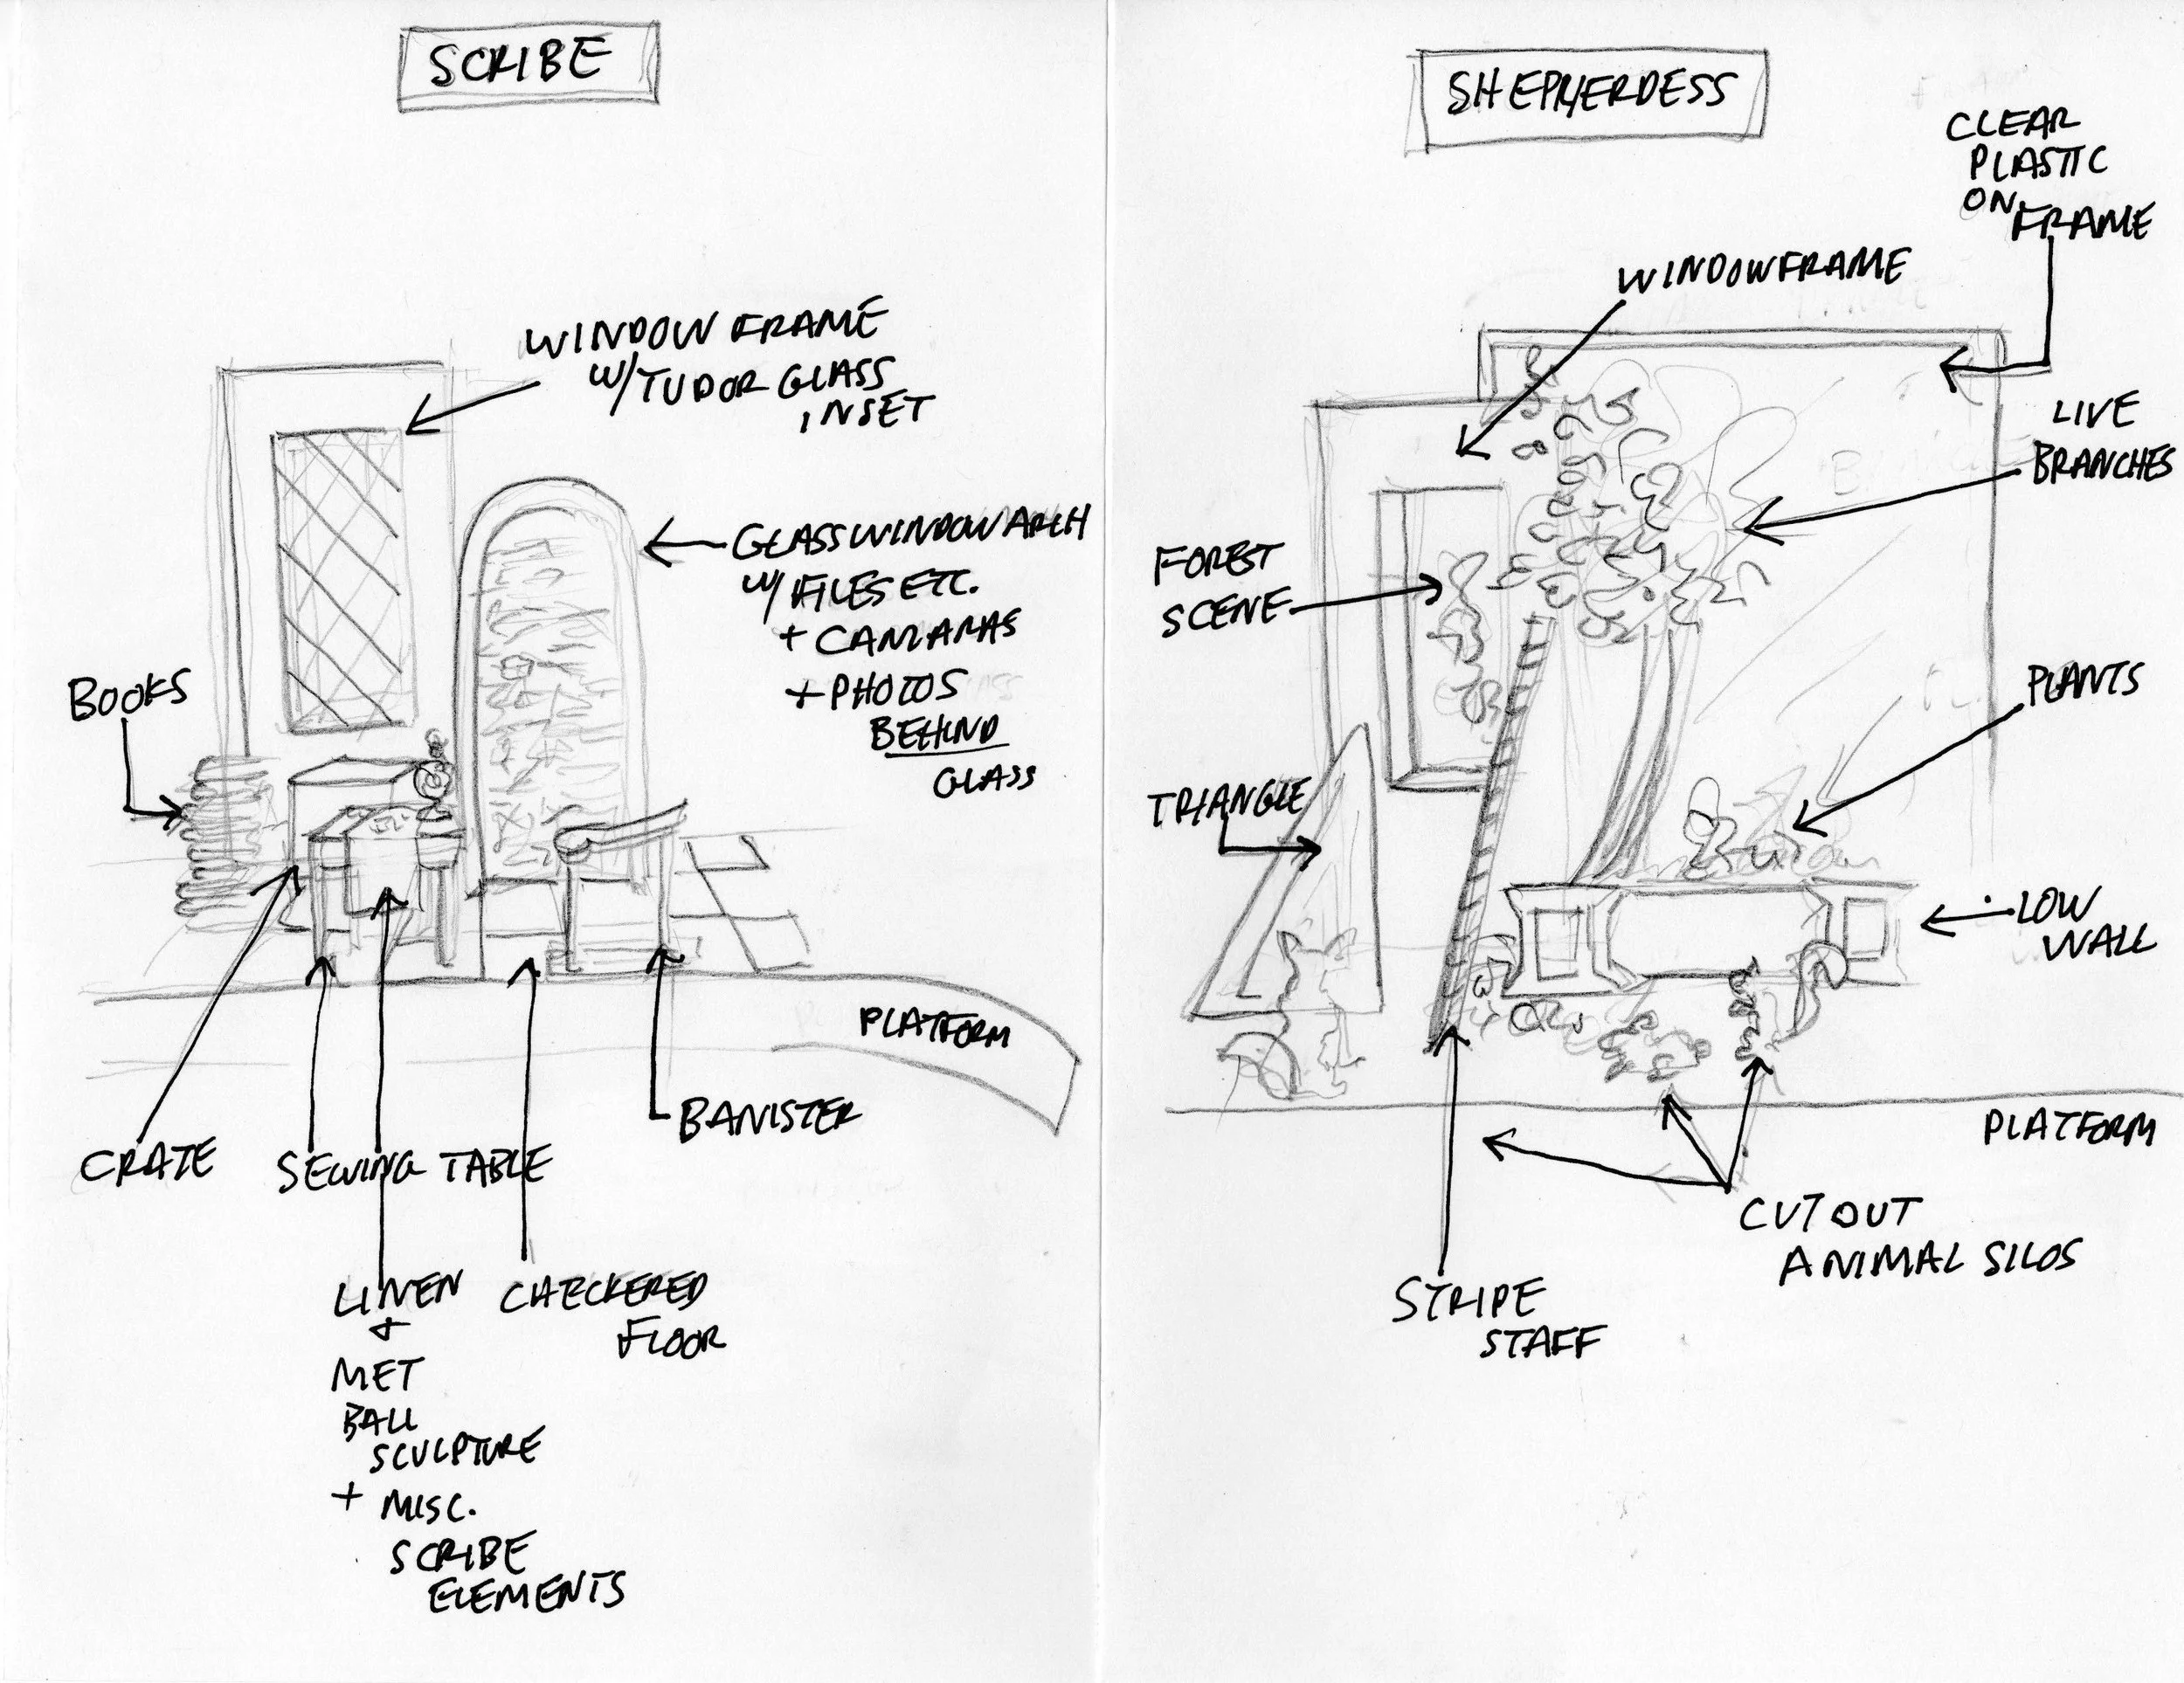 SCRIBE
WINDOW FRAME
W/TUDOR GLASS
INSET
GLASS WINDOW ARCH
W/ FILES ETC.
+ CAMERAS
+ PHOTOS
BEHIND
GLASS
BOOKS
PLATFORM
BANISTER
CRATE
SEWING TABLE
LINEN
+
MET
BALL
SCULPTURE
+ MISC.
SCRIBE
ELEMENTS
CHECKERED
FLOOR
SHEPHERDESS
CLEAR
PLASTIC
ON
FRAME
WINDOWFRAME
LIVE
BRANCHES
FOREST
SCENE
PLANTS
TRIANGLE
LOW
WALL
PLATFORM
CUT OUT
ANIMAL SILOS
STRIPE
STAFF